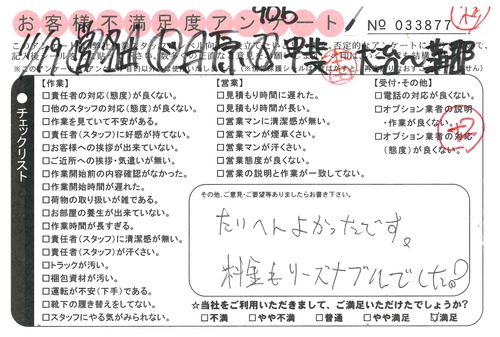 お客様不満足度アンケート
906
No 033877
【作業】
□責任者の対応(態度)が良くない。
□他のスタッフの対応(態度)が良くない。
□作業を見ていて不安がある。
□責任者(スタッフ)に好感が持てない。
□お客様への挨拶が出来ていない。
□ご近所への挨拶・気遣いが無い。
□作業開始前の内容確認がなかった。
□作業開始時間が遅れた。
□荷物の取り扱いが雑である。
□お部屋の養生が出来ていない。
□作業時間が長すぎる。
□責任者(スタッフ)に清潔感が無い。
□責任者(スタッフ)が汗くさい。
□トラックが汚い。
□梱包資材が汚い。
□運転が不安(下手)である。
□靴下の履き替えをしてない。
□スタッフにやる気がみられない。
【営業】
□見積もり時間に遅れた。
□見積もり時間が長い。
□営業マンに清潔感が無い。
□営業マンが煙草くさい。
□営業マンが汗くさい。
□営業態度が良くない。
□営業の説明と作業が一致してない。
【受付・その他】
□電話の対応が良くない。
□オプション業者の説明
・作業が良くない。
□オプション業者の対応
(態度)が良くない。
チェックリスト
その他、ご意見・ご要望等ありましたらお書き下さい。
たいへんよかったです。
料金もリーズナブルでした。
☆当社をご利用いただきまして、ご満足いただけたでしょうか?
□不満 □やや不満 □普通 □やや満足 ☑満足